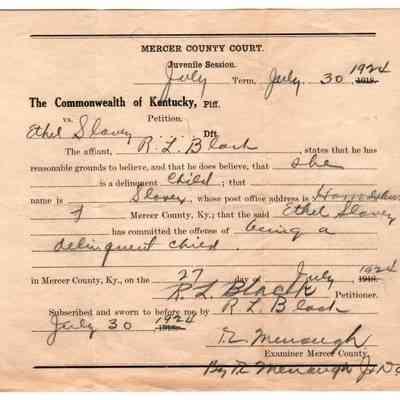 MERCER COUNTY COURT.
Juvenile Session.
July Term, July 30 1924 1918.
The Commonwealth of Kentucky, Plff.
vs. Petition.
Ethel Slavey Dft.
The affiant, R. L. Black, states that he has
reasonable grounds to believe, and that he does believe, that she
is a delinquent child; that
name is Slavey, whose post office address is
Mercer County, Ky.; that the said Ethel Slavey
has committed the offense of being a
delinquent child
in Mercer County, Ky., on the 27 day of July 1924 1918.
R. L. Black Petitioner.
Subscribed and sworn to before me by R. L. Black
July 30 1924 1918.
Menaugh
Examiner Mercer County
By Menaugh Jr D C